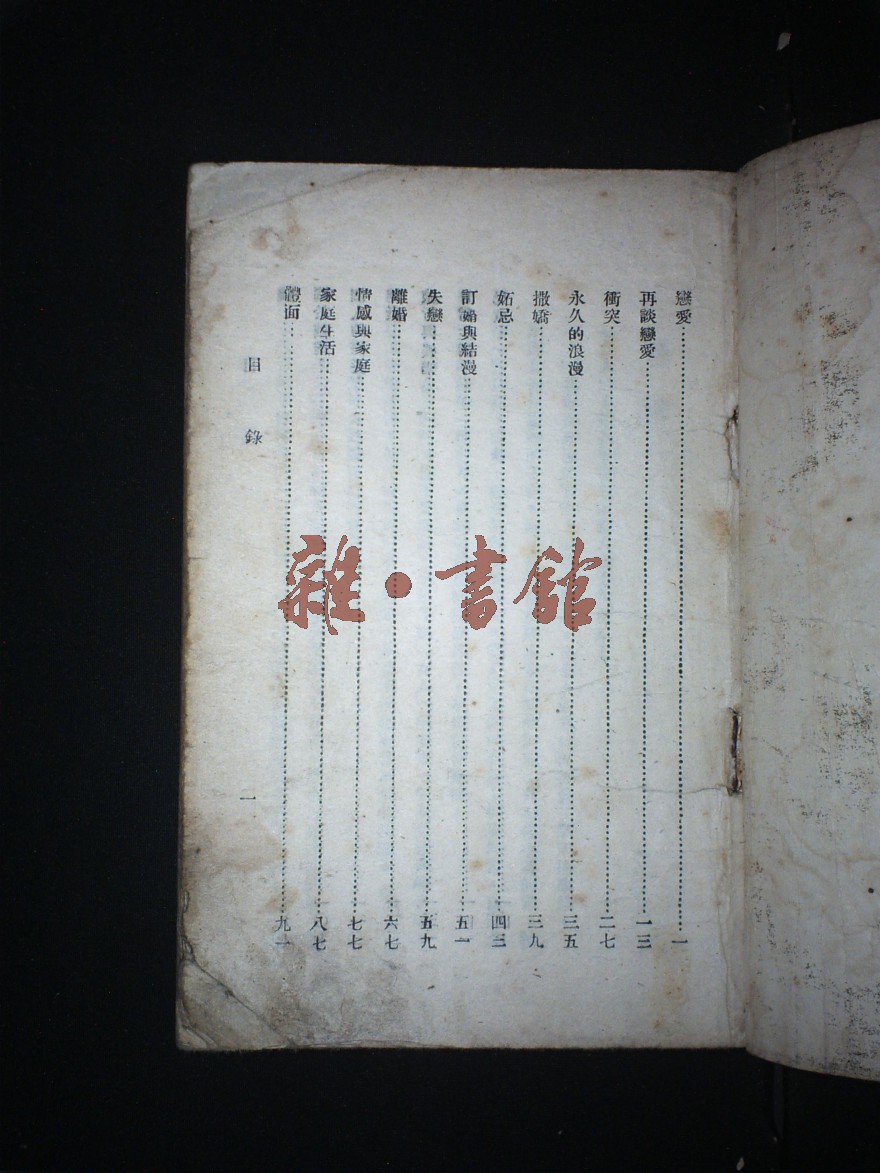 戀愛一
再談戀愛一三
衝突二七
永久的浪漫三五
撒嬌三九
妬忌四三
訂婚與結漫五一
失戀五九
離婚六七
情感與家庭七七
家庭生活八七
體面九一
目錄
一
雜·書館